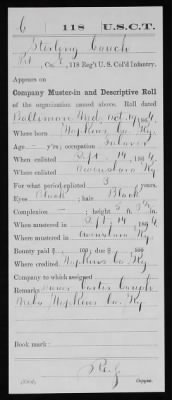 C | 118 | U.S.C.T.
Sterling Couch
Pvt, Co. , 118 Reg't U. S. Col'd Infantry.
Appears on
Company Muster-in and Descriptive Roll
of the organization named above. Roll dated
Baltimore Md. Oct 19, 1864.
Where born Hopkins Co. Ky.
Age yr's; occupation Laborer
When enlisted Sept. 14, 1864
Where enlisted Owensboro Ky.
For what period enlisted 3 years.
Eyes Black ; hair Black
Complexion ; height 5 ft. in.
When mustered in Sept. 14, 1864
Where mustered in Owensboro Ky.
Bounty paid $ 100; due $ 100
Where credited Hopkins Co. Ky
Company to which assigned
Remarks: owner Carter Couch
Nebo Hopkins Co. Ky
Book mark:
Copyist.